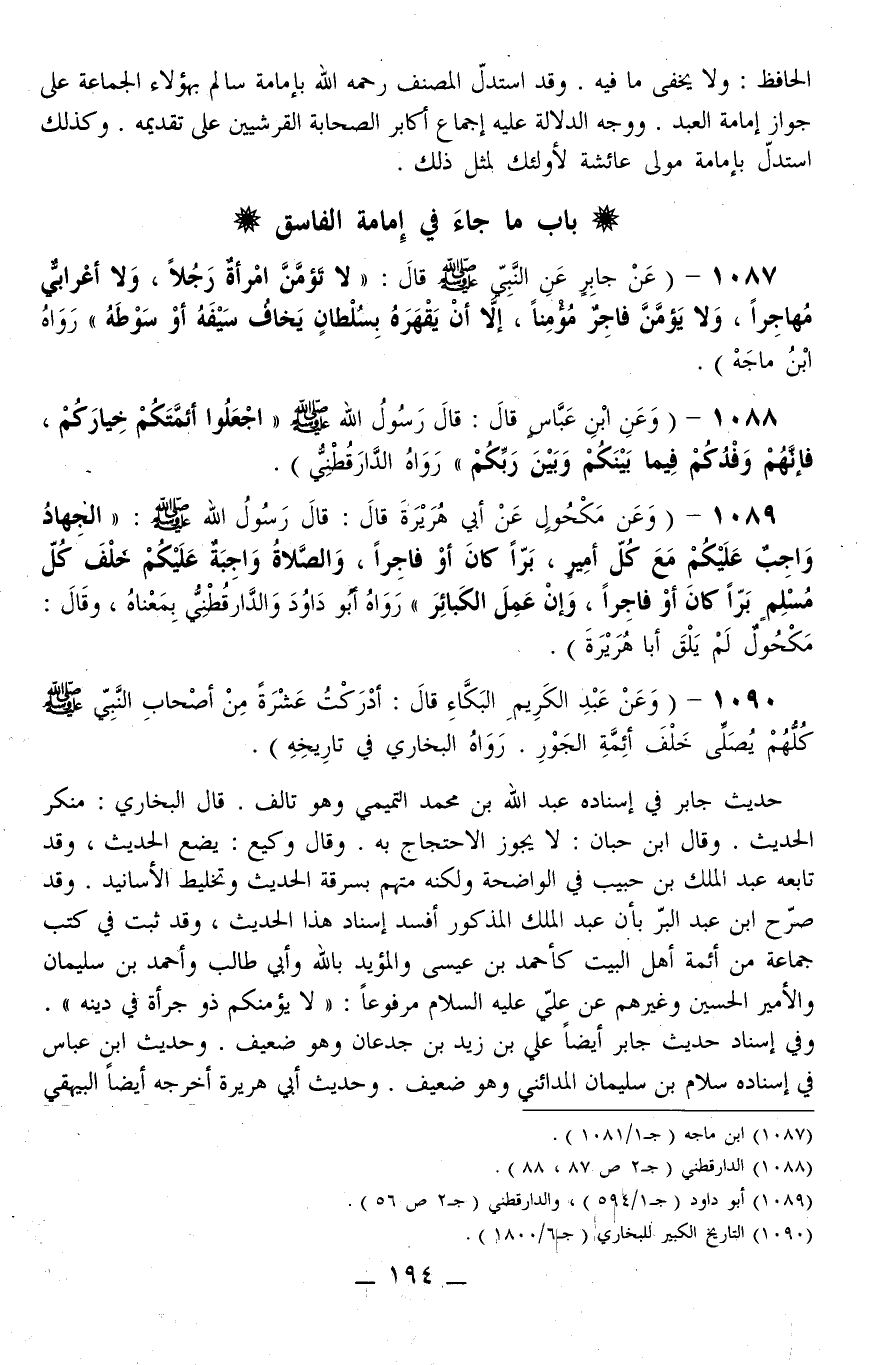 الحافظ : ولا يخفى ما فيه . وقد استدلّ المصنف رحمه الله بإمامة سالم بهؤلاء الجماعة على
جواز إمامة العبد . ووجه الدلالة عليه إجماع أكابر الصحابة القرشيين على تقديمه . وكذلك
استدلّ بإمامة مولى عائشة لأولئك لمثل ذلك .
✸ باب ما جاءَ في إمامة الفاسق ✸
١٠٨٧ – ( عَنْ جابِرٍ عَنِ النَّبِيّ ﷺ قالَ : « لا تَؤمَّنَّ امْرأةٌ رَجُلاً ، وَلا أعْرابيٌّ
مُهاجِراً ، وَلا يَؤمَّنَّ فاجِرٌ مُؤْمِناً ، إلَّا أنْ يَقْهَرَهُ بِسُلْطانٍ يَخافُ سَيْفَهُ أوْ سَوْطَهُ » رَوَاهُ
ابْنُ ماجَهْ ) .
١٠٨٨ – ( وَعَنِ ابْنِ عَبَّاسٍ قالَ : قالَ رَسُولُ الله ﷺ « اجْعَلُوا أئمَّتَكُمْ خِيارَكُمْ ،
فإنَّهُمْ وَفْدُكُمْ فِيما بَيْنَكُمْ وَبَيْنَ رَبِّكُمْ » رَوَاهُ الدَّارَقُطْنِيُّ ) .
١٠٨٩ – ( وَعَن مَكْحُولٍ عَنْ أبي هُرَيْرَةَ قالَ : قالَ رَسُولُ الله ﷺ : « الجِهادُ
وَاجِبٌ عَلَيْكُمْ مَعَ كُلّ أمِيرٍ ، بَرّاً كانَ أوْ فاجراً ، وَالصَّلاةُ وَاجِبَةٌ عَلَيْكُمْ خَلْفَ كُلّ
مُسْلِمٍ بَرّاً كانَ أوْ فاجراً ، وَإنْ عَمِلَ الكَبائِرَ » رَوَاهُ أبُو دَاوُدَ وَالدَّارقُطْنِيُّ بِمَعْناهُ ، وقَالَ :
مَكْحُولٌ لَمْ يَلْقَ أبا هُرَيْرَةَ ) .
١٠٩٠ – ( وَعَنْ عَبْدِ الكَرِيمِ البَكَّاءِ قالَ : أدْرَكْتُ عَشْرَةً مِنْ أصْحابِ النَّبِيّ ﷺ
كُلُّهُمْ يُصَلِّى خَلْفَ أئِمَّةِ الجَوْرِ . رَوَاهُ البخاري في تارِيخِهِ ) .
حديث جابر في إسناده عبد الله بن محمد التميمي وهو تالف . قال البخاري : منكر
الحديث . وقال ابن حبان : لا يجوز الاحتجاج به . وقال وكيع : يضع الحديث ، وقد
تابعه عبد الملك بن حبيب في الواضحة ولكنه متهم بسرقة الحديث وتخليط الأسانيد . وقد
صرّح ابن عبد البرّ بأن عبد الملك المذكور أفسد إسناد هذا الحديث ، وقد ثبت في كتب
جماعة من أئمة أهل البيت كأحمد بن عيسى والمؤيد بالله وأبي طالب وأحمد بن سليمان
والأمير الحسين وغيرهم عن عليّ عليه السلام مرفوعاً : « لا يؤمنكم ذو جرأة في دينه » .
وفي إسناد حديث جابر أيضاً علي بن زيد بن جدعان وهو ضعيف . وحديث ابن عباس
في إسناده سلام بن سليمان المدائني وهو ضعيف . وحديث أبي هريرة أخرجه أيضاً البيهقي
(١٠٨٧) ابن ماجه ( جـ١/١٠٨١ ) .
(١٠٨٨) الدارقطني ( جـ٢ ص ٨٧ ، ٨٨ ) .
(١٠٨٩) أبو داود ( جـ١/٥٩٤ ) ، والدارقطني ( جـ٢ ص ٥٦ ) .
(١٠٩٠) التاريخ الكبير للبخاري ( جـ٦/١٨٠٠ ) .
_ ١٩٤ _